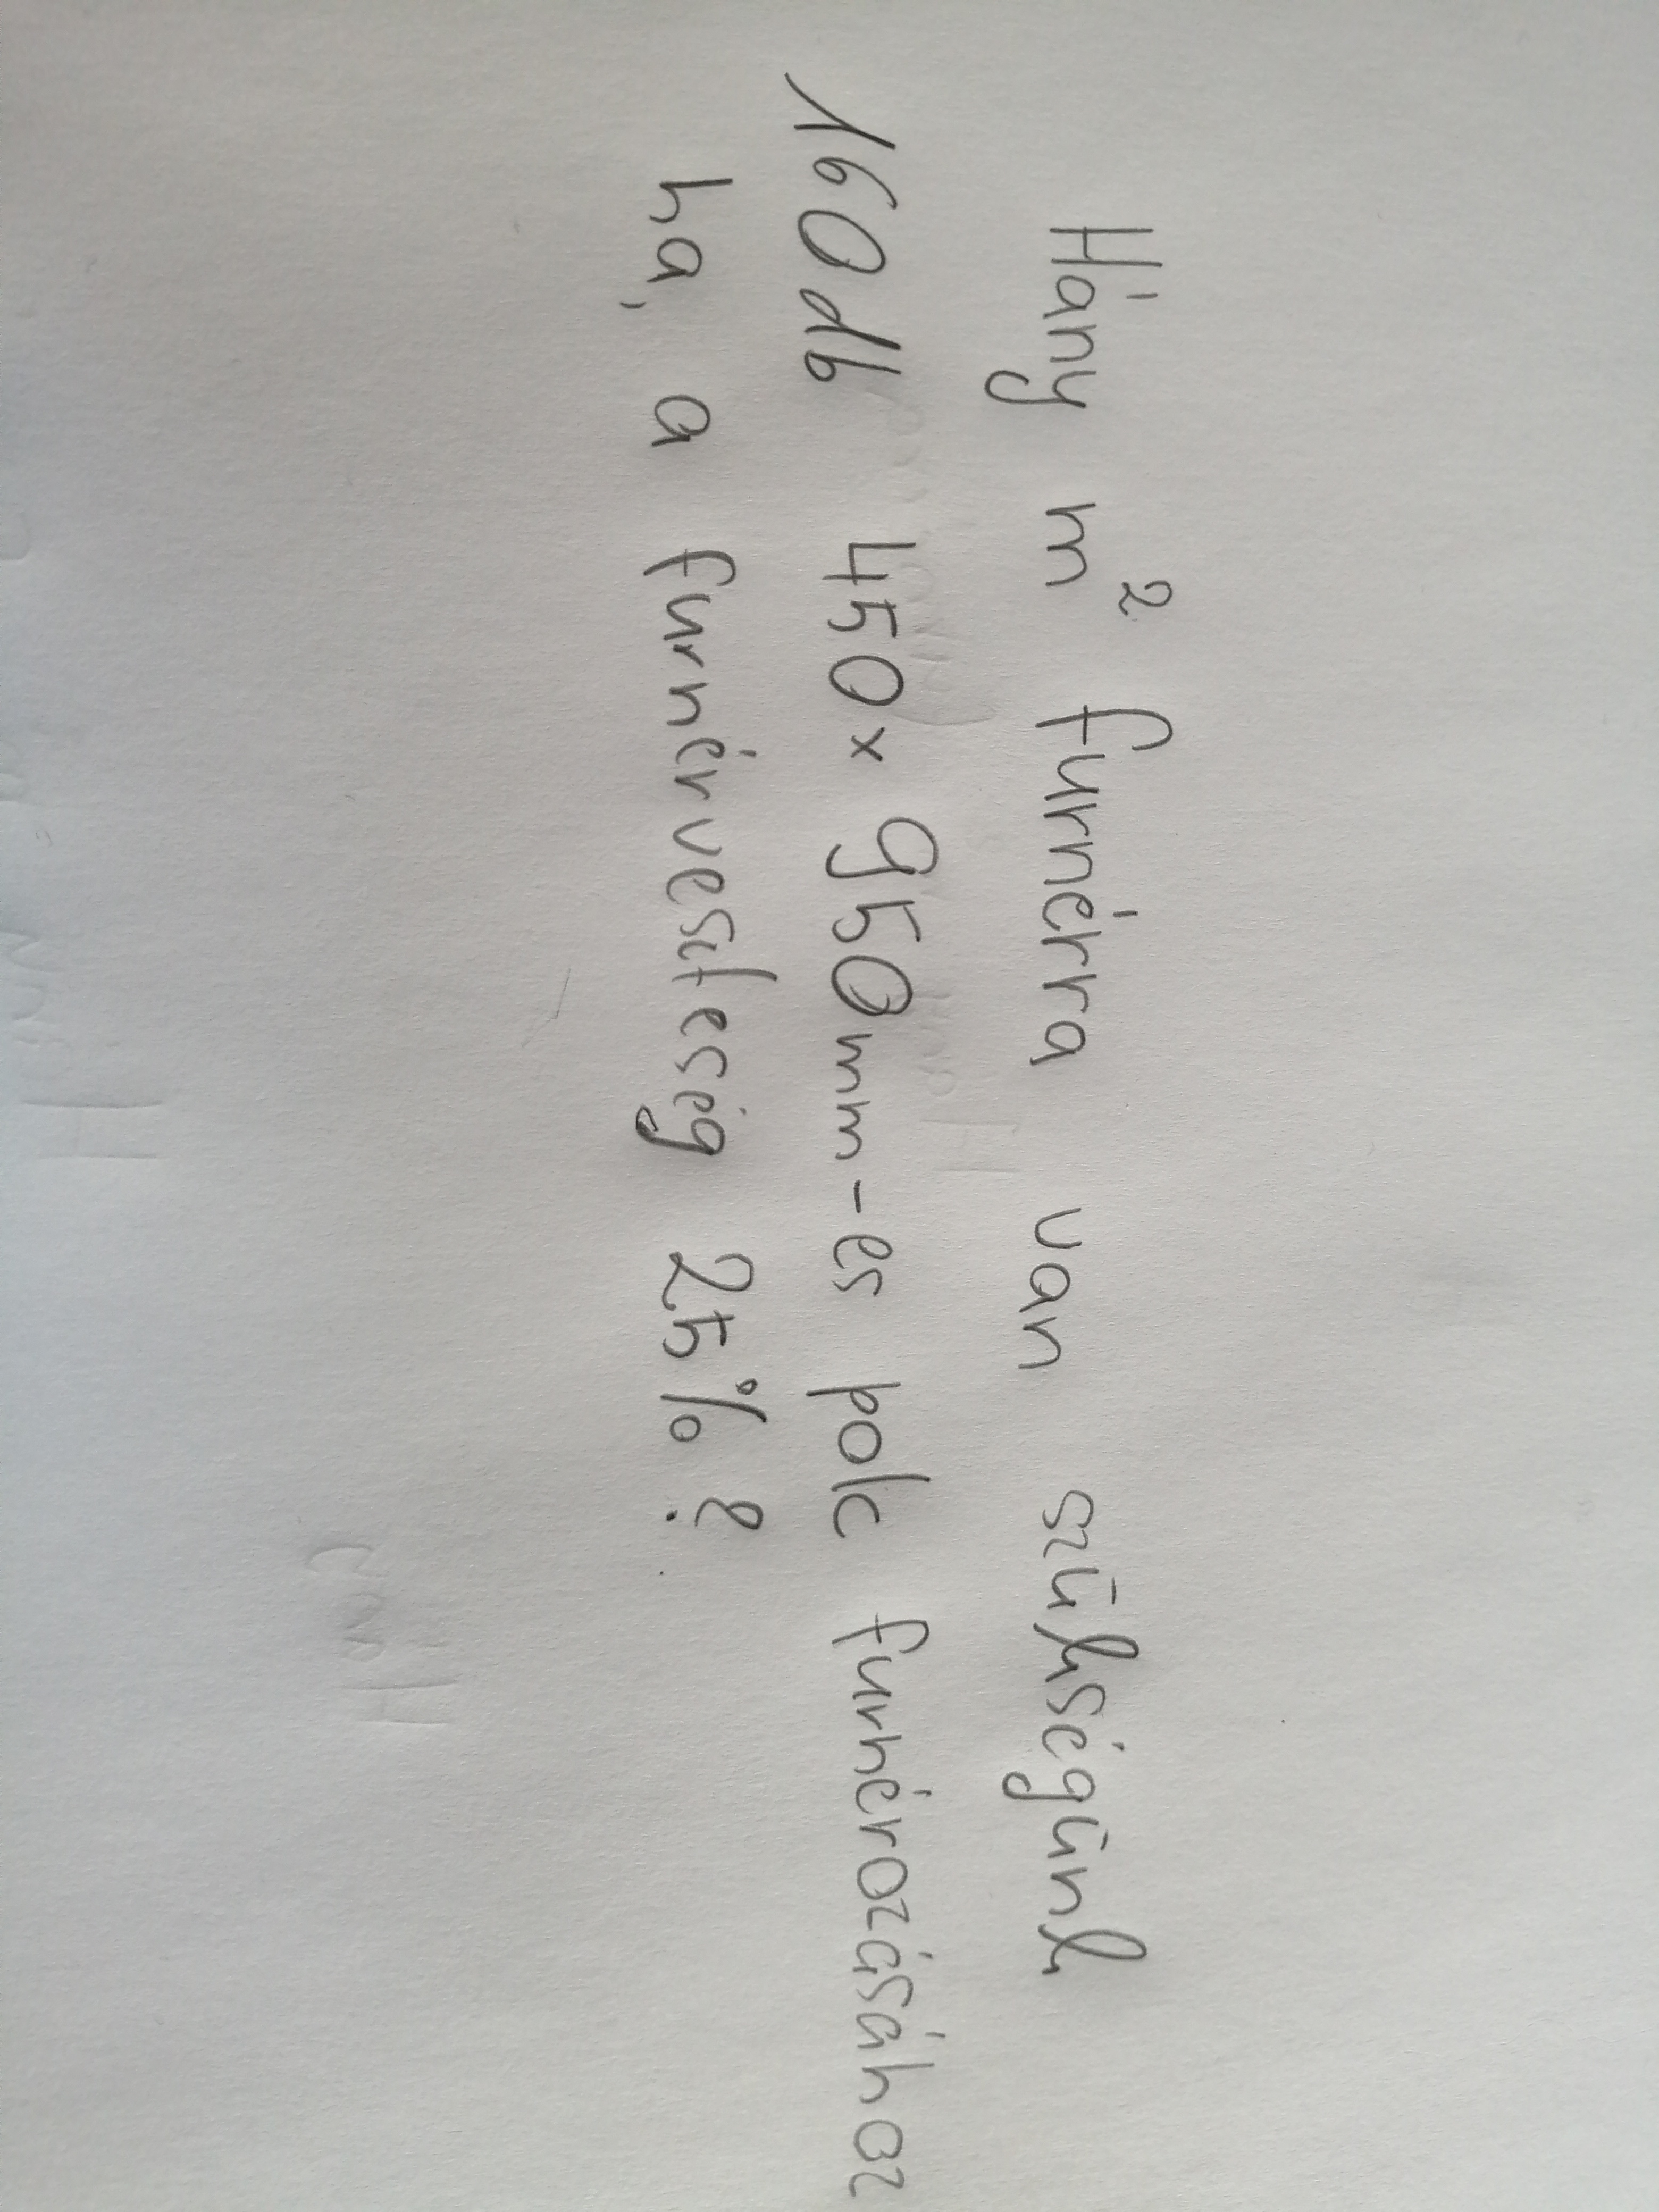 Hány m² furnérra van szükségünk
160 db 450x950mm-es polc furnérozásához
ha, a furnérveszteség 25%?